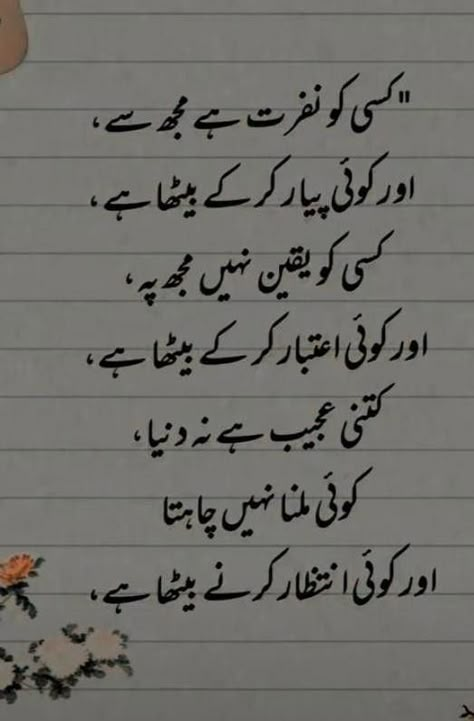 "کسی کو نفرت ہے مجھ سے،
اور کوئی پیار کر کے بیٹھا ہے،
کسی کو یقین نہیں مجھ پہ،
اور کوئی اعتبار کر کے بیٹھا ہے،
کتنی عجیب ہے نہ دنیا،
کوئی ملنا نہیں چاہتا
اور کوئی انتظار کرنے بیٹھا ہے،